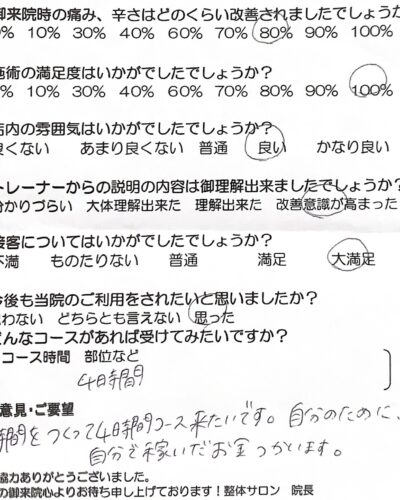 御来院時の痛み、辛さはどのくらい改善されましたでしょうか
% 10% 30% 40% 60% 70% 80% 90% 100%
施術の満足度はいかがでしたでしょうか？
% 10% 30% 40% 60% 70% 80% 90% 100%
店内の雰囲気はいかがでしたでしょうか？
良くない あまり良くない 普通 良い かなり良い
トレーナーからの説明の内容は御理解出来ましたでしょうか？
分かりづらい 大体理解出来た 理解出来た 改善意識が高まった
接客についてはいかがでしたでしょうか？
不満 ものたりない 普通 満足 大満足
今後も当院のご利用をされたいと思いましたか？
思わない どちらとも言えない 思った
どんなコースがあれば受けてみたいですか？
コース時間 部位など
4時間
意見・ご要望
時間をつくって4時間コース来たいです。自分のために、
自分で稼いだお金つかいます。
協力ありがとうございました。
の御来院心よりお待ち申し上げております！整体サロン 院長